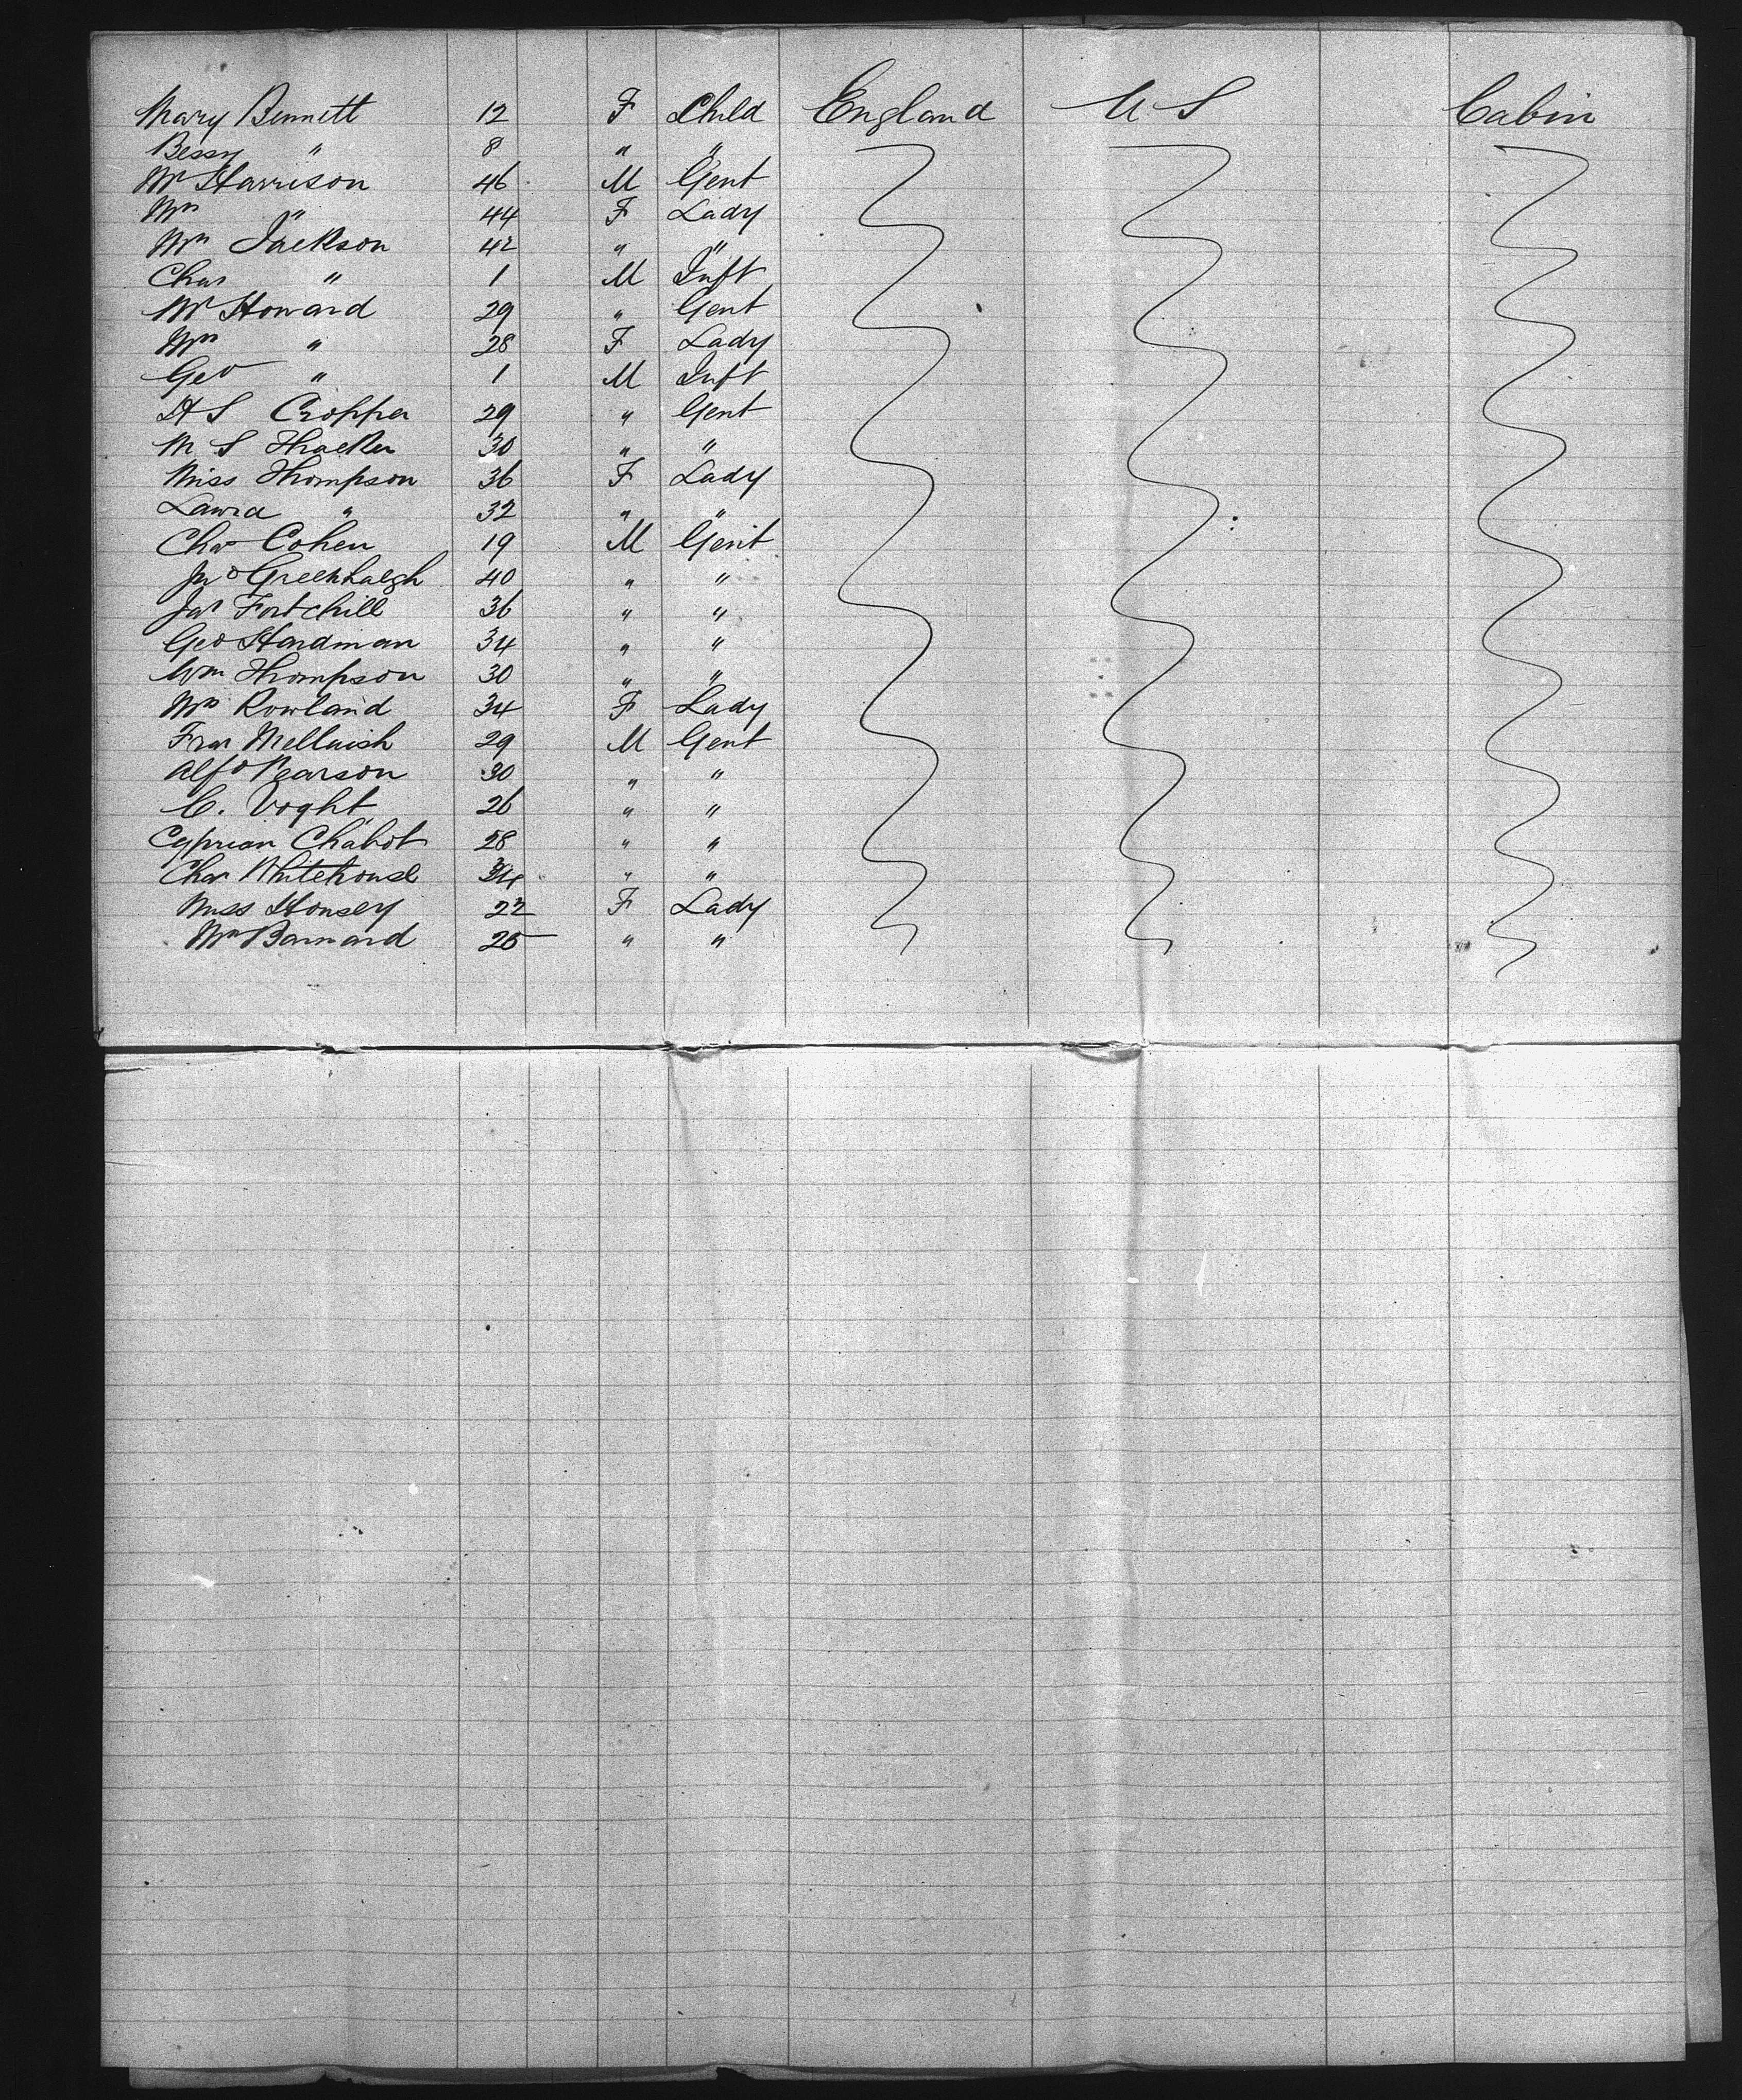 Mary Bennett 12 F Child England U S Cabin
Bessy " 8 " "
Mr Harrison 46 M Gent
Mrs " 44 F Lady
Mrs Jackson 42 " "
Chas " 1 M Inft
Mr Howard 29 " Gent
Mrs " 28 F Lady
Geo " 1 M Inft
H S Cropper 29 " Gent
M S Thacker 30 " "
Miss Thompson 36 F Lady
Laura " 32 " "
Chas Cohen 19 M Gent
Jno Greenhalgh 40 " "
Jas Fortchill 36 " "
Geo Hardman 34 " "
Wm Thompson 30 " "
Mrs Rowland 34 F Lady
Fras Melluish 29 M Gent
Alfd Pearson 30 " "
C. Voght 26 " "
Cyprian Chabot 28 " "
Chas Whitehouse 34 " "
Miss Housey 22 F Lady
Mrs Barnard 25 " "